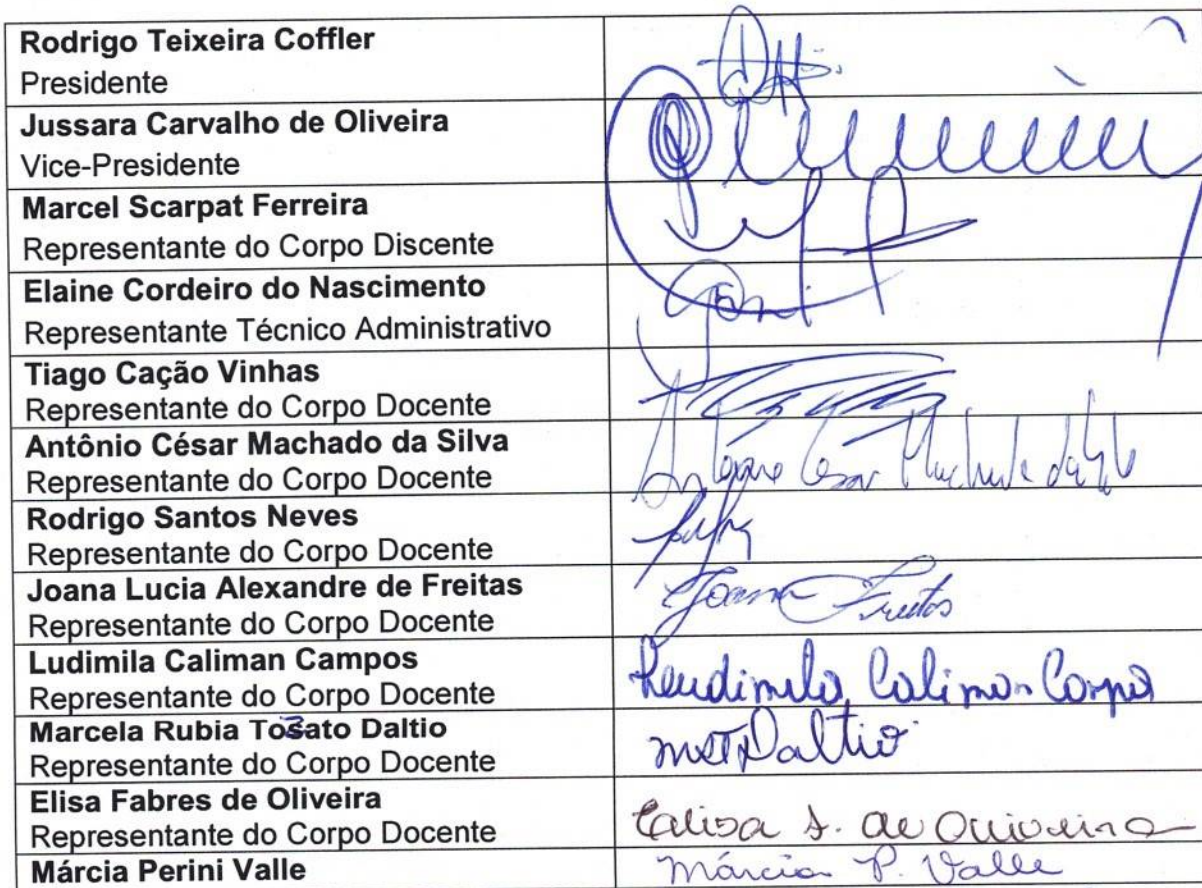 Rodrigo Teixeira Coffler
Presidente
Jussara Carvalho de Oliveira
Vice-Presidente
Marcel Scarpat Ferreira
Representante do Corpo Discente
Elaine Cordeiro do Nascimento
Representante Técnico Administrativo
Tiago Cação Vinhas
Representante do Corpo Docente
Antônio César Machado da Silva
Representante do Corpo Docente
Antonio Cesar Machado da Silva
Rodrigo Santos Neves
Representante do Corpo Docente
Joana Lucia Alexandre de Freitas
Representante do Corpo Docente
Joana Freitas
Ludimila Caliman Campos
Representante do Corpo Docente
Ludimila Caliman Campos
Marcela Rubia Tozato Daltio
Representante do Corpo Docente
Daltio
Elisa Fabres de Oliveira
Representante do Corpo Docente
Elisa F. de Oliveira
Márcia Perini Valle
Márcia P. Valle